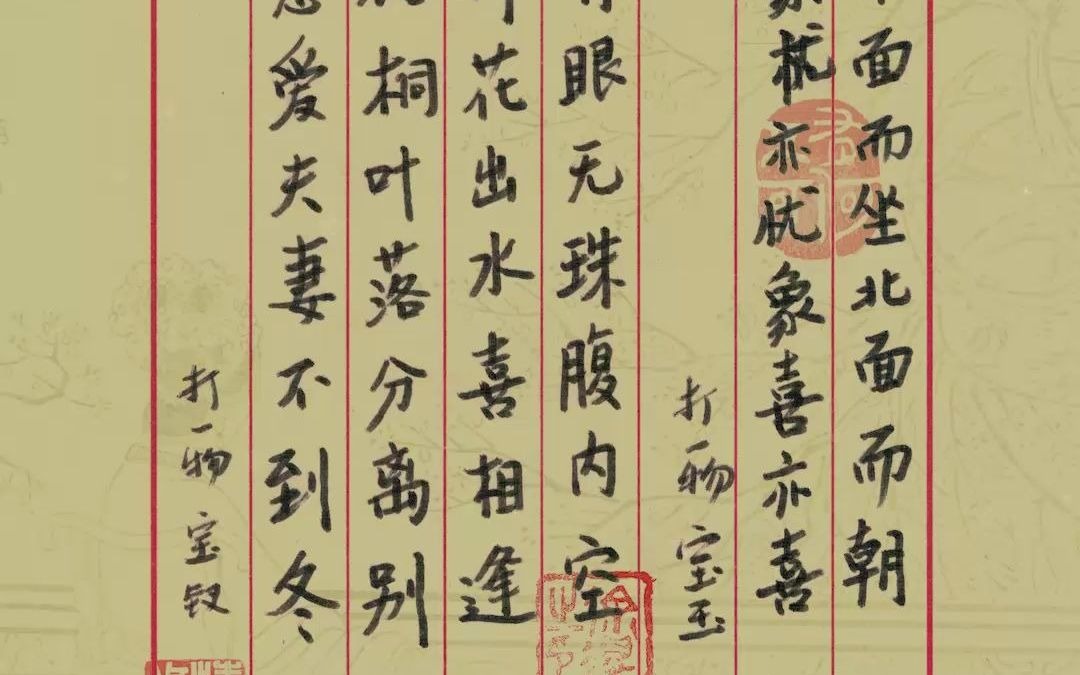 面而坐北面而朝
忧亦忧象喜亦喜
打一物 宝玉
眼无珠腹内空
花出水喜相逢
桐叶落分离别
爱夫妻不到冬
打一物 宝钗